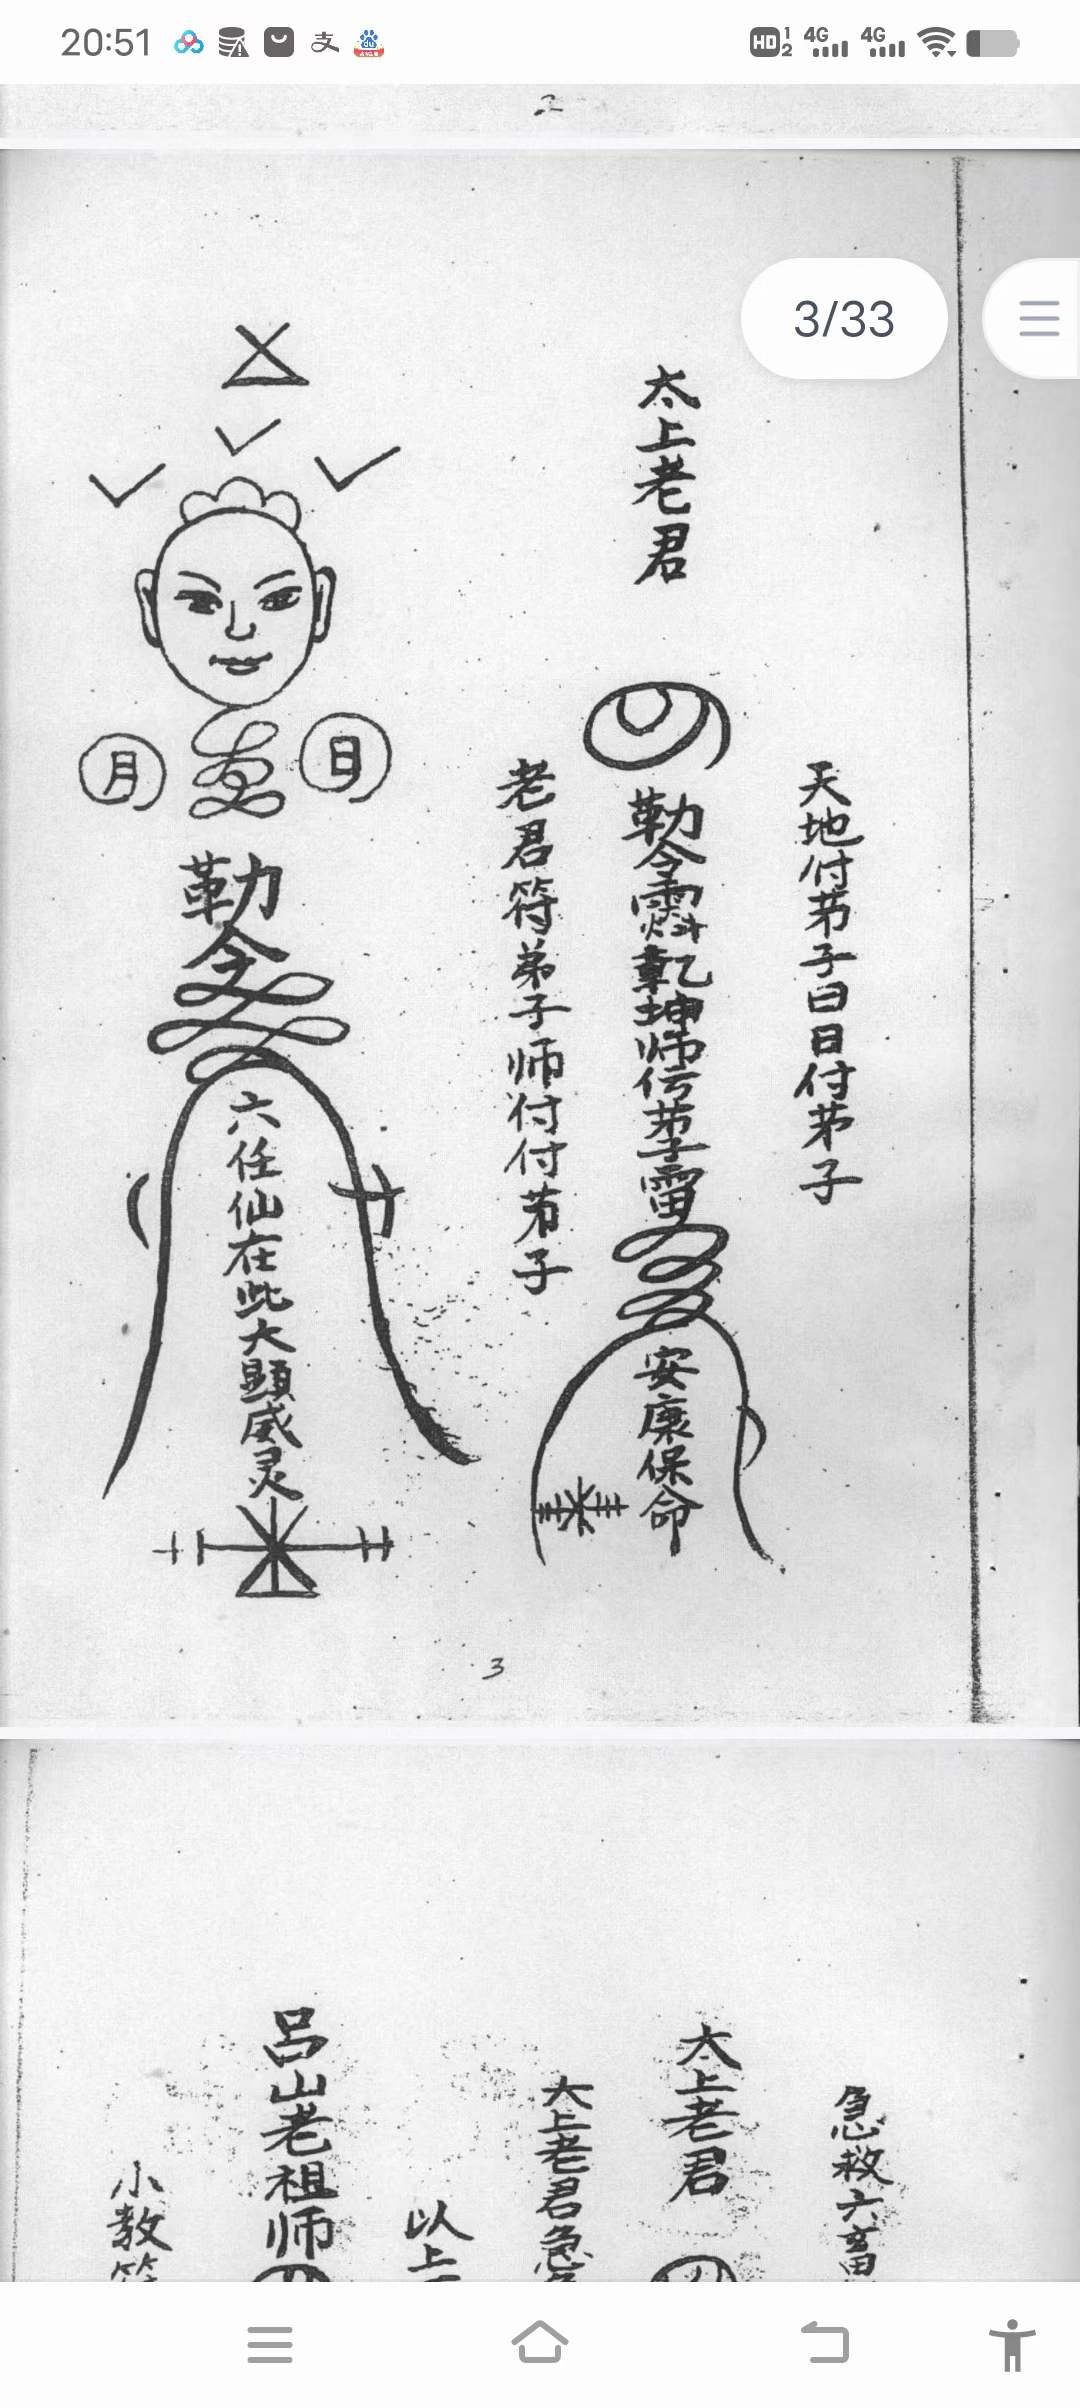 20:51
2
3/33
太上老君
天地付弟子曰日付弟子
勒令
乾坤师
弟子雷
安康保命
老君符弟子师付付弟子
月
日
勒令
六任仙在此大顕威灵
3
急救六畜
太上老君
大上老君急
以上
吕山老祖师
小教符